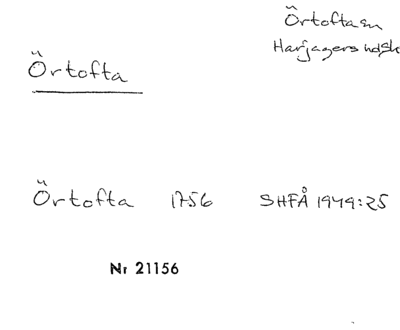 Örtofta sn
Harjagers hd Sk
Örtofta
Örtofta 1756 SHFÅ 1949:25
Nr 21156